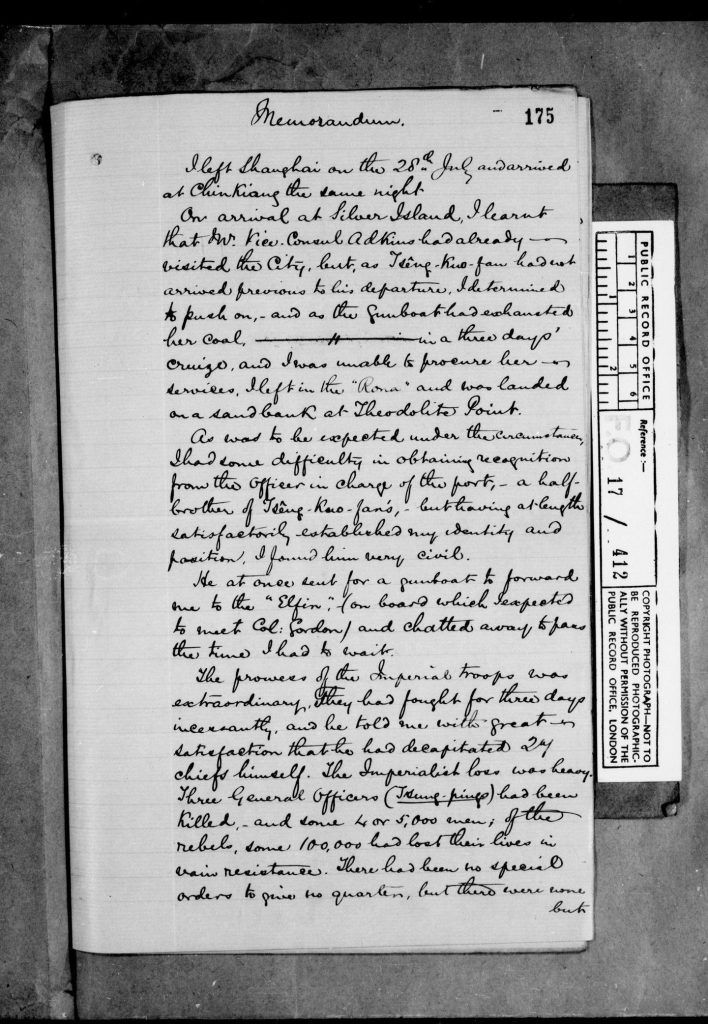 Memorandum.
175
I left Shanghai on the 28th July and arrived
at Chinkiang the same night
On arrival at Silver Island, I learnt
that Mr. Vice-Consul Adkins had already
visited the City, but, as Tsêng-Kuo-fan had not
arrived previous to his departure, I determined
to push on, - and as the Gunboat had exhausted
her coal, in a three days'
cruize, and I was unable to procure her
services, I left in the "Rona" and was landed
on a sand bank at Theodolite Point.
As was to be expected under the circumstances,
I had some difficulty in obtaining recognition
from the Officer in charge of the port, - a half-
brother of Tsêng-Kuo-fan's, - but having at length
satisfactorily established my identity and
position, I found him very civil.
He at once sent for a gunboat to forward
me to the "Elfin", (on board which I expected
to meet Col: Gordon) and chatted away to pass
the time I had to wait.
The prowess of the Imperial troops was
extraordinary, they had fought for three days
incessantly, and he told me with great
satisfaction that he had decapitated 27
chiefs himself. The Imperialist loss was heavy.
Three General Officers (Tsung-pings) had been
killed, - and some 4 or 5,000 men; of the
rebels, some 100,000 had lost their lives in
vain resistance. There had been no special
orders to give no quarter, but there were none
but
PUBLIC RECORD OFFICE
1 2 3 4 5 6
1 2
Reference :-
FO 17 / 412
COPYRIGHT PHOTOGRAPH—NOT TO
BE REPRODUCED PHOTOGRAPHIC-
ALLY WITHOUT PERMISSION OF THE
PUBLIC RECORD OFFICE, LONDON